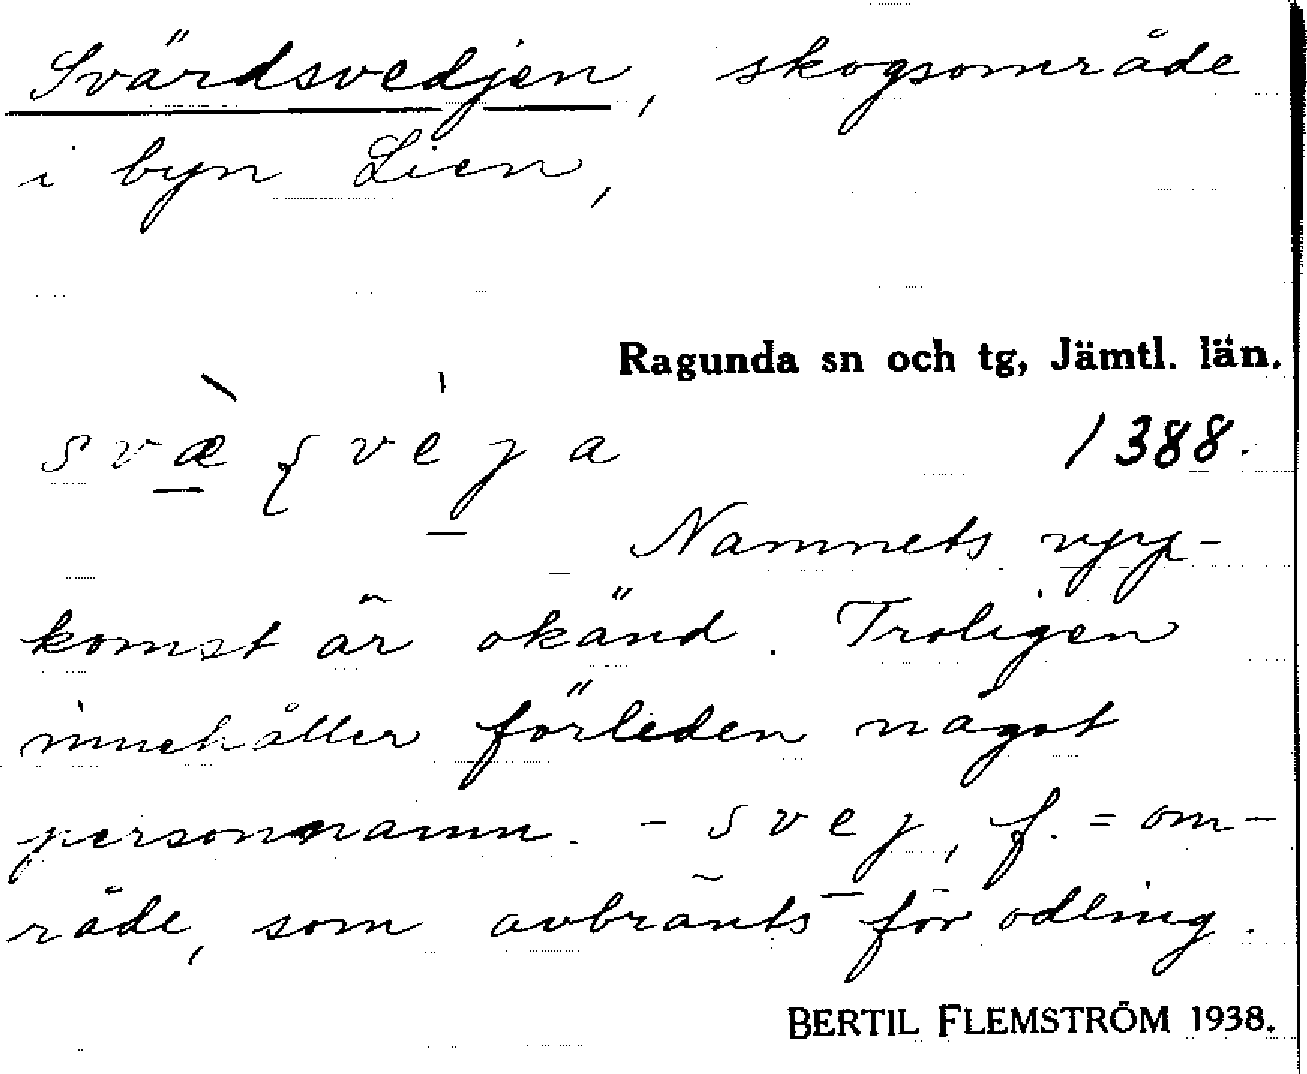 Svärdsvedjen, skogsområde
i byn Lien,
Ragunda sn och tg, Jämtl. län.
svæ̀ʂvèja 1388.
Namnets upp-
komst är okänd. Troligen
innehåller förleden något
personnamn. - svej, f. = om-
råde, som avbränts för odling.
BERTIL FLEMSTRÖM 1938.